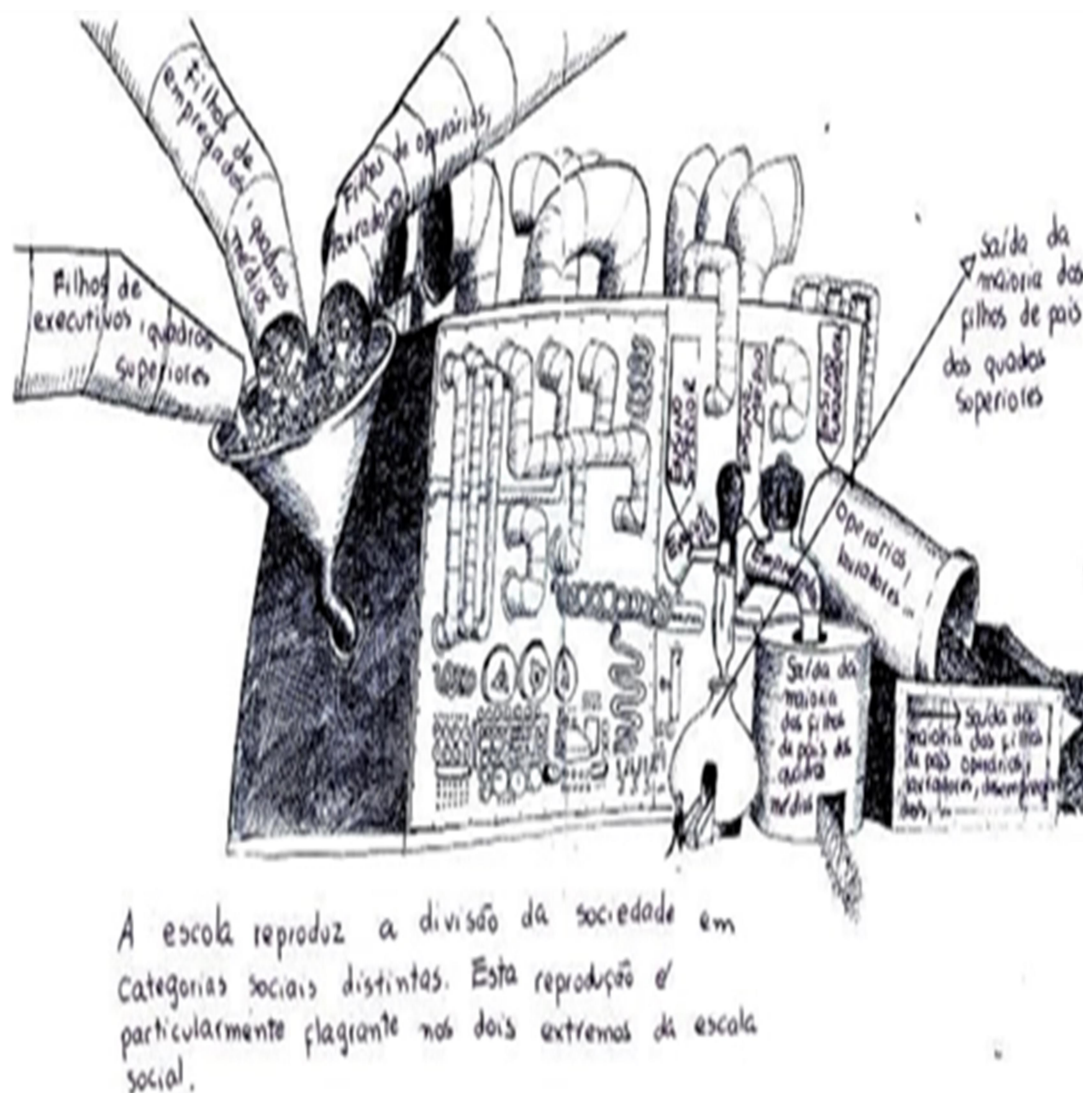 Filhos de
empregados, quadros
médios
Filhos de operários,
lavradores
Filhos de
executivos, quadros
superiores
Saída da
maioria dos
filhos de pais
dos quadros
superiores
ENSINO
SUPERIOR
ENSINO
operários,
lavradores...
Empregados
Saída da
maioria
dos filhos
de pais dos
quadros
médios
Saída da
maioria dos filhos
de pais operários,
lavradores, desemprega
dos, ...
A escola reproduz a divisão da sociedade em
categorias sociais distintas. Esta reprodução é
particularmente flagrante nos dois extremos da escala
social.